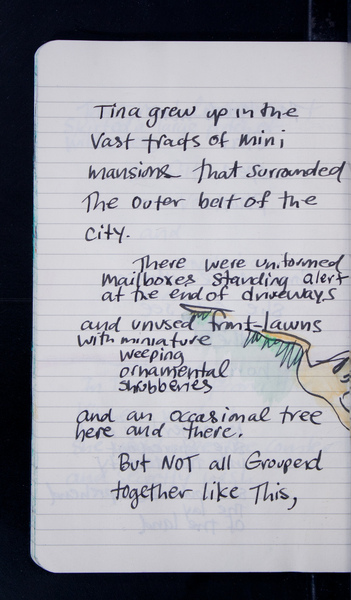 Tina grew up in the
Vast tracts of mini
mansions that surrounded
The outer belt of the
City.
There were uniformed
mailboxes standing alert
at the end of driveways
and unused front-lawns
with miniature
weeping
ornamental
shrubberies
and an occasional tree
here and there.
But NOT all Grouperd
together like This,